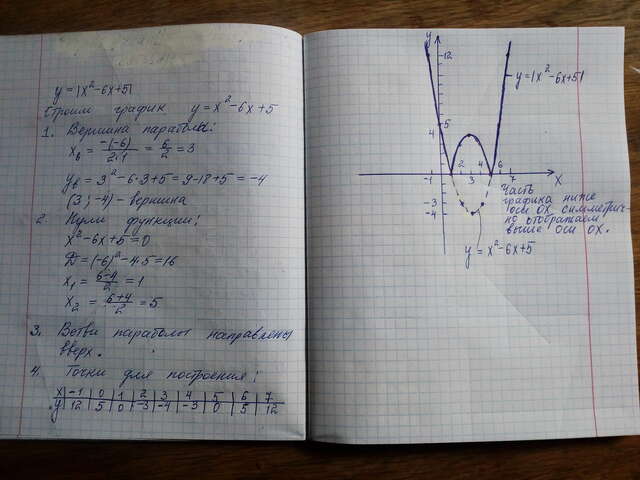 y = |x² - 6x + 5|
Строим график y = x² - 6x + 5
1. Вершина параболы:
xв = -(-6)/2·1 = 6/2 = 3
yв = 3² - 6·3 + 5 = 9 - 18 + 5 = -4
(3; -4) - вершина
2. Нули функции:
x² - 6x + 5 = 0
Д = (-6)² - 4·5 = 16
x₁ = 6-4/2 = 1
x₂ = 6+4/2 = 5
3. Ветви параболы направлены
вверх.
4. Точки для построения:
x -1 0 1 2 3 4 5 6 7
y 12 5 0 -3 -4 -3 0 5 12
y
12
y = |x² - 6x + 5|
5
4
-1 2 3 4 6 7 x
-3
-4
Часть
графика ниже
оси OX симметрич-
но отображаем
выше оси OX.
y = x² - 6x + 5